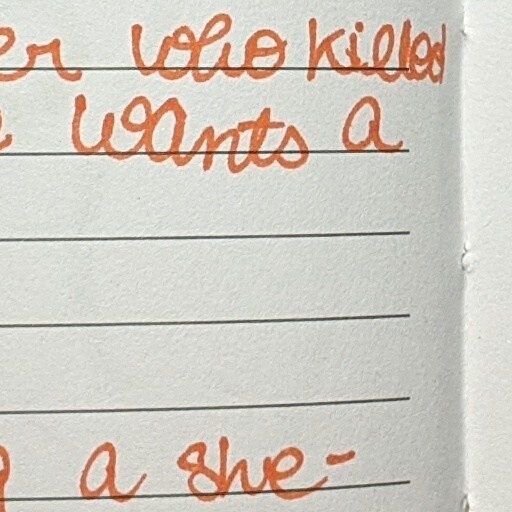 er who killed
wants a
a she-